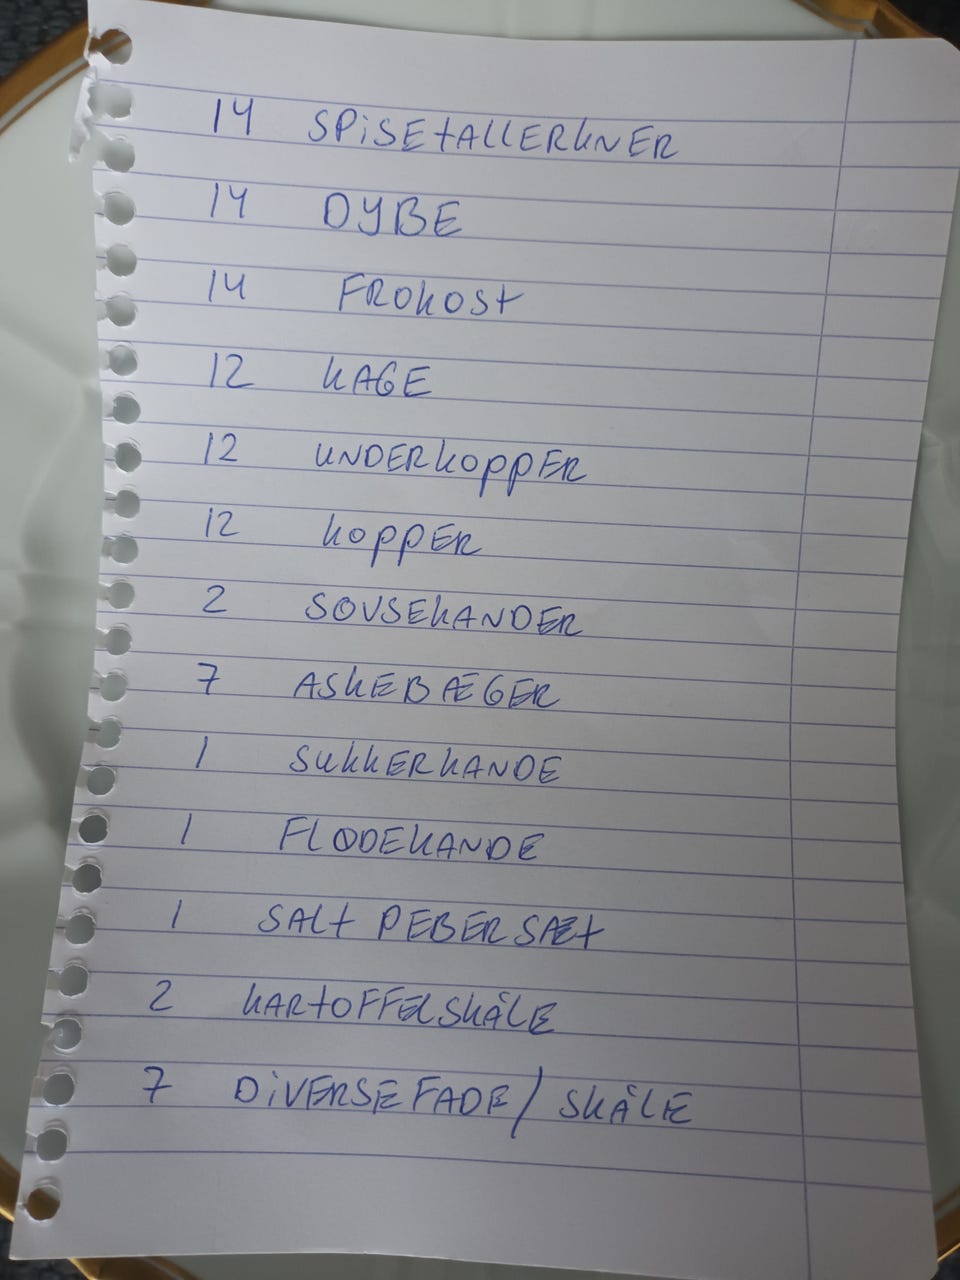 14 SPISETALLERKNER
14 DYBE
14 FROKOST
12 KAGE
12 UNDERKOPPER
12 KOPPER
2 SOVSEKANDER
7 ASKEBÆGER
1 SUKKERKANDE
1 FLØDEKANDE
1 SALT PEBERSÆT
2 KARTOFFELSKÅLE
7 DIVERSE FADE/SKÅLE